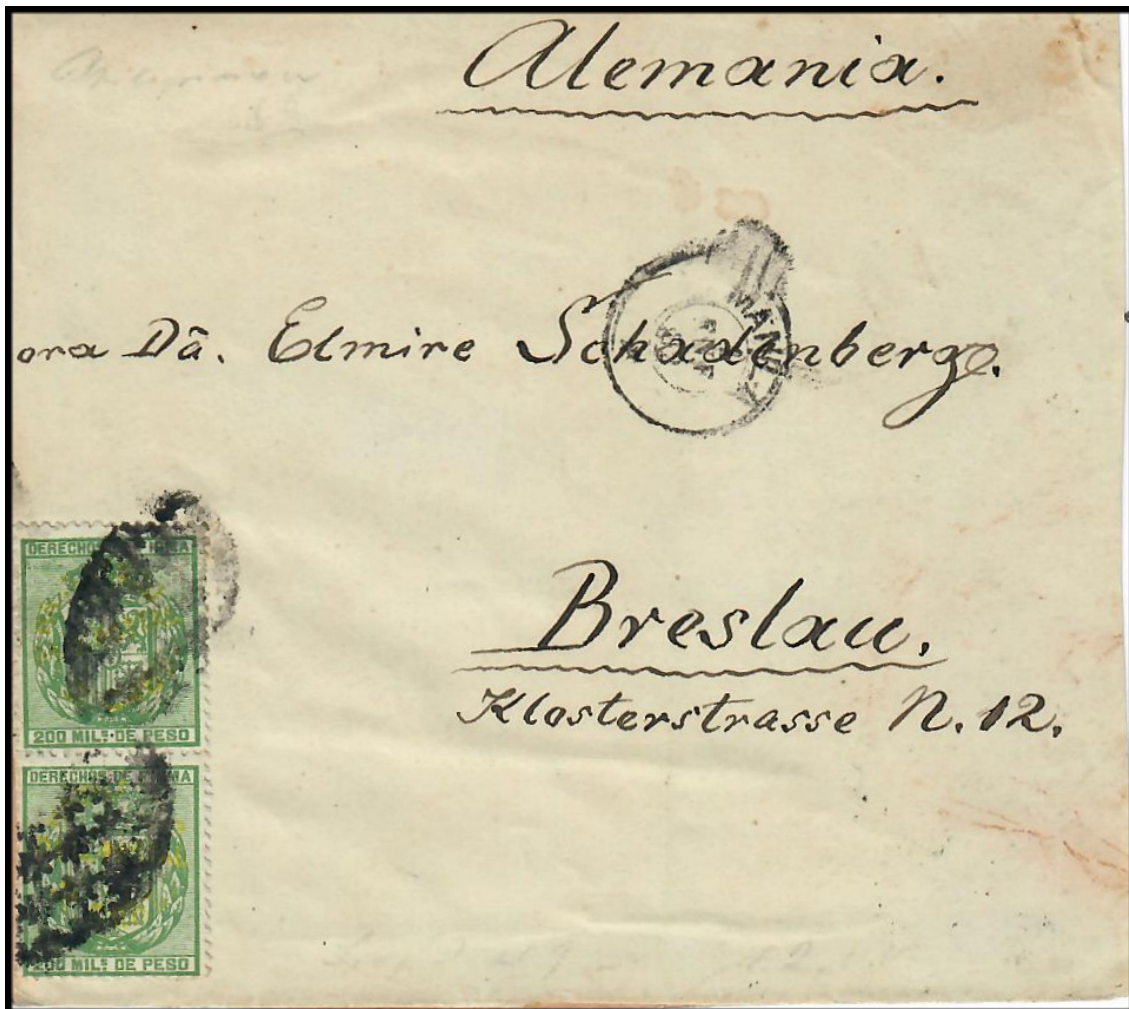 Alemania.
MANILA
ora Dã. Elmire Schadenberg.
Breslau.
Klosterstrasse N. 12.
DERECHOS DE FIRMA
200 MILS. DE PESO
DERECHOS DE FIRMA
200 MILS. DE PESO